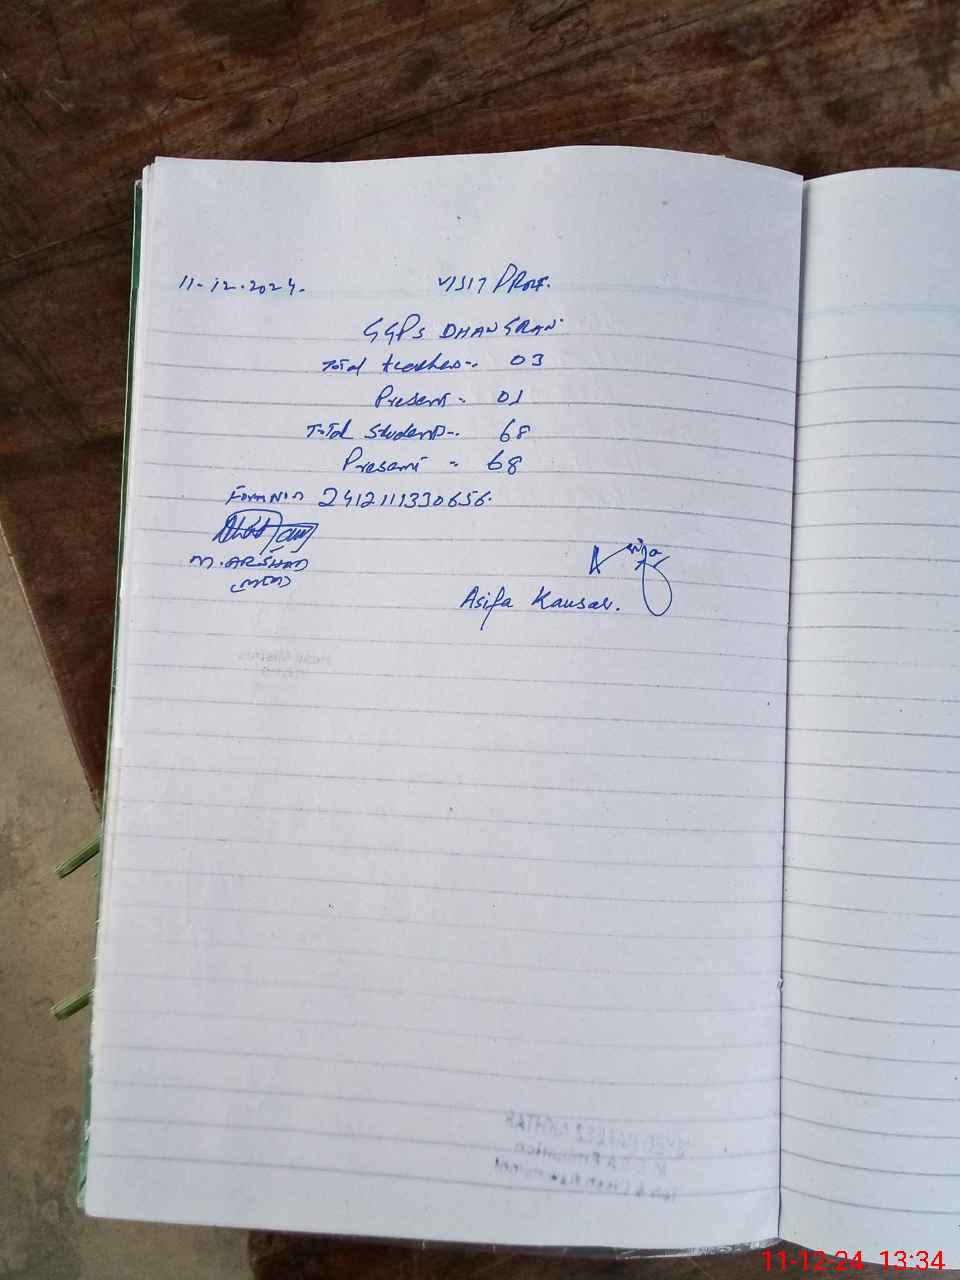 11-12-2024. VISIT PROOF.
GGPS DHANGRAN
Total teachers-. 03
Present -. 01
Total Students-. 68
Present - 68
Form No 2412111330656.
M. ARSHAD
(MEA)
Asifa
Asifa Kausar.
11-12-24 13:34